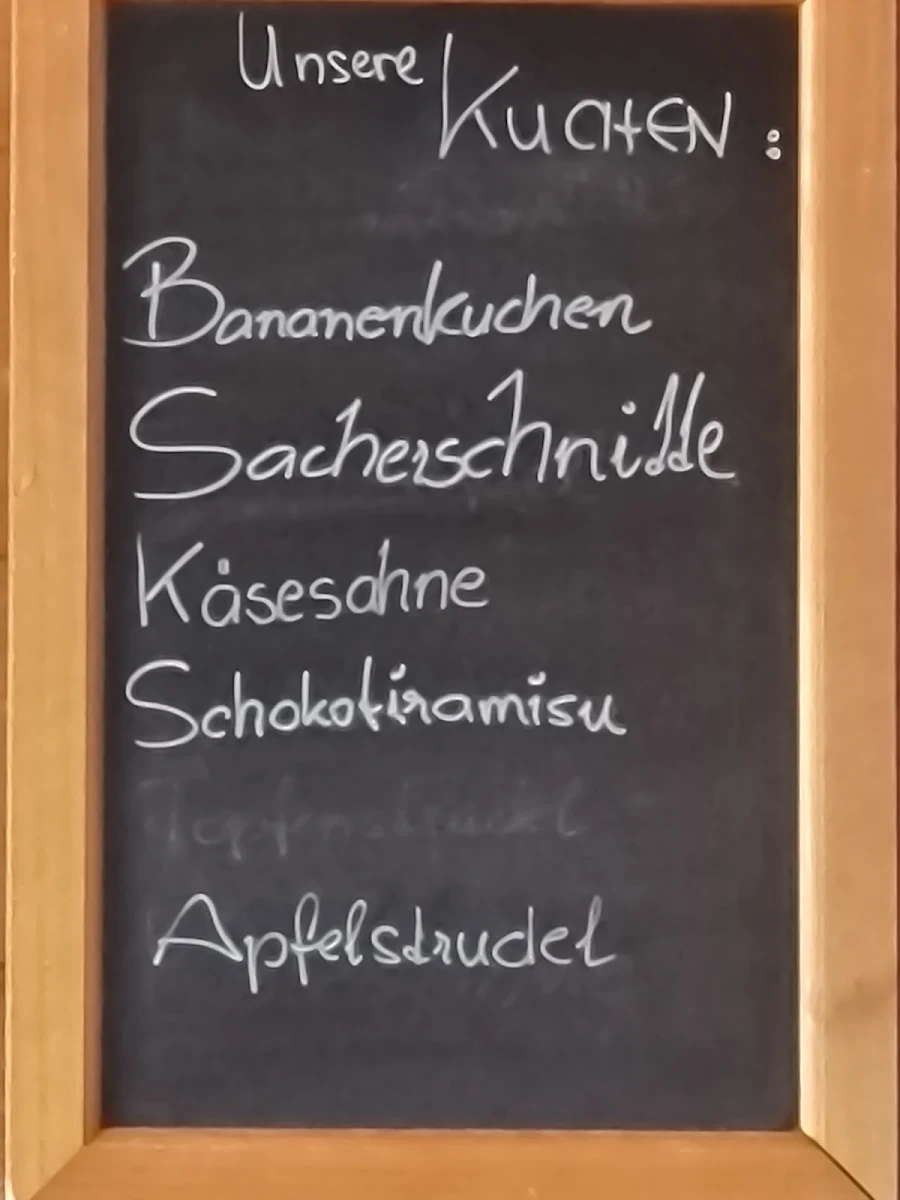 Unsere KUCHEN:
Bananenkuchen
Sacherschnitte
Käsesahne
Schokotiramisu
Topfenstrudel
Apfelstrudel